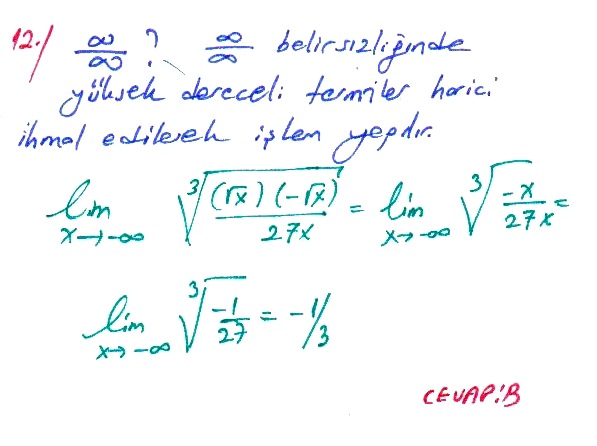 12./ ∞/∞ ? ∞/∞ belirsizliğinde
yüksek dereceli terimler harici
ihmal edilerek işlem yapılır.
lim x→-∞ ∛((√x)(-√x)/27x) = lim x→-∞ ∛(-x/27x) =
lim x→-∞ ∛(-1/27) = -1/3
CEVAP:B